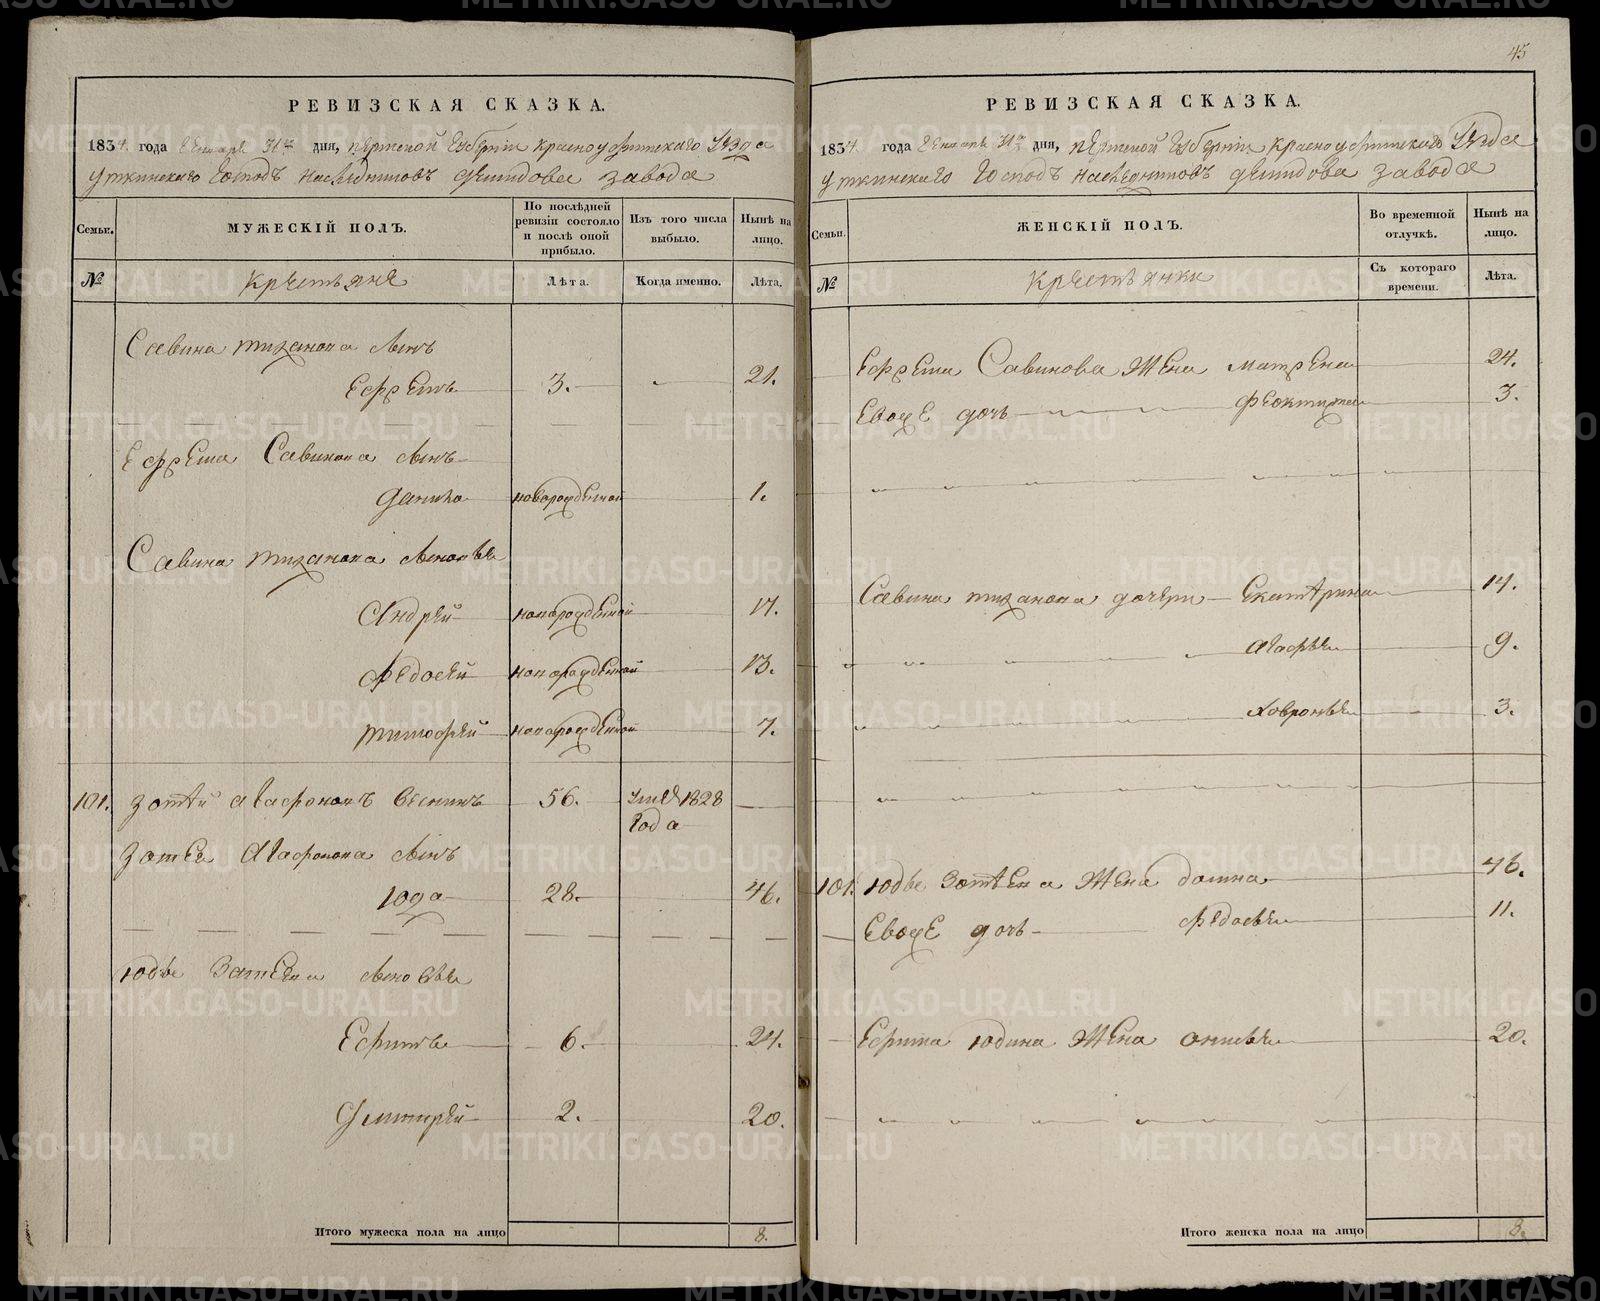 45
РЕВИЗСКАЯ СКАЗКА.
1834. года Генваря 31го дня, пермской губернии красноуфимского уезда
уткинского господъ наследниковъ демидова завода
Семьи.
МУЖЕСКІЙ ПОЛЪ.
По послѣдней ревизіи состояло и послѣ оной прибыло.
Изъ того числа выбыло.
Нынѣ на лицо.
№
крестьяне
Лѣта.
Когда именно.
Лѣта.
Савина тиханова сынъ
Ефремъ 3. 21.
Ефрема Савинова сынъ
данило новорожденной 1.
Савина тиханова сыновья
Андрей новорожденной 17.
Федосей новорожденной 13.
тимофей новорожденной 7.
101. зотѣй агафоновъ 56. умер 1828
года
зотея Агафонова сынъ
юда 28. 46.
юды зотеева сыновья
Ефимъ 6. 24.
Дмитрей 2. 20.
Итого мужеска пола на лицо 8.
РЕВИЗСКАЯ СКАЗКА.
1834. года Генваря 31го дня, пермской губернии красноуфимского уезда
уткинского господъ наследниковъ демидова завода
Семьи.
ЖЕНСКІЙ ПОЛЪ.
Во временной отлучкѣ.
Нынѣ на лицо.
№
крестьянки
Съ котораго времени.
Лѣта.
Ефрема Савинова жена матрена 24.
Евоże дочь 3.
Савина тиханова дочери Екатерина 14.
Агафья 9.
Ховронья 3.
101. юды зотеева жена домна 46.
Евоже дочь федосья 11.
Ефима юдина жена 20.
Итого женска пола на лицо 8.
METRIKI.GASO-URAL.RU